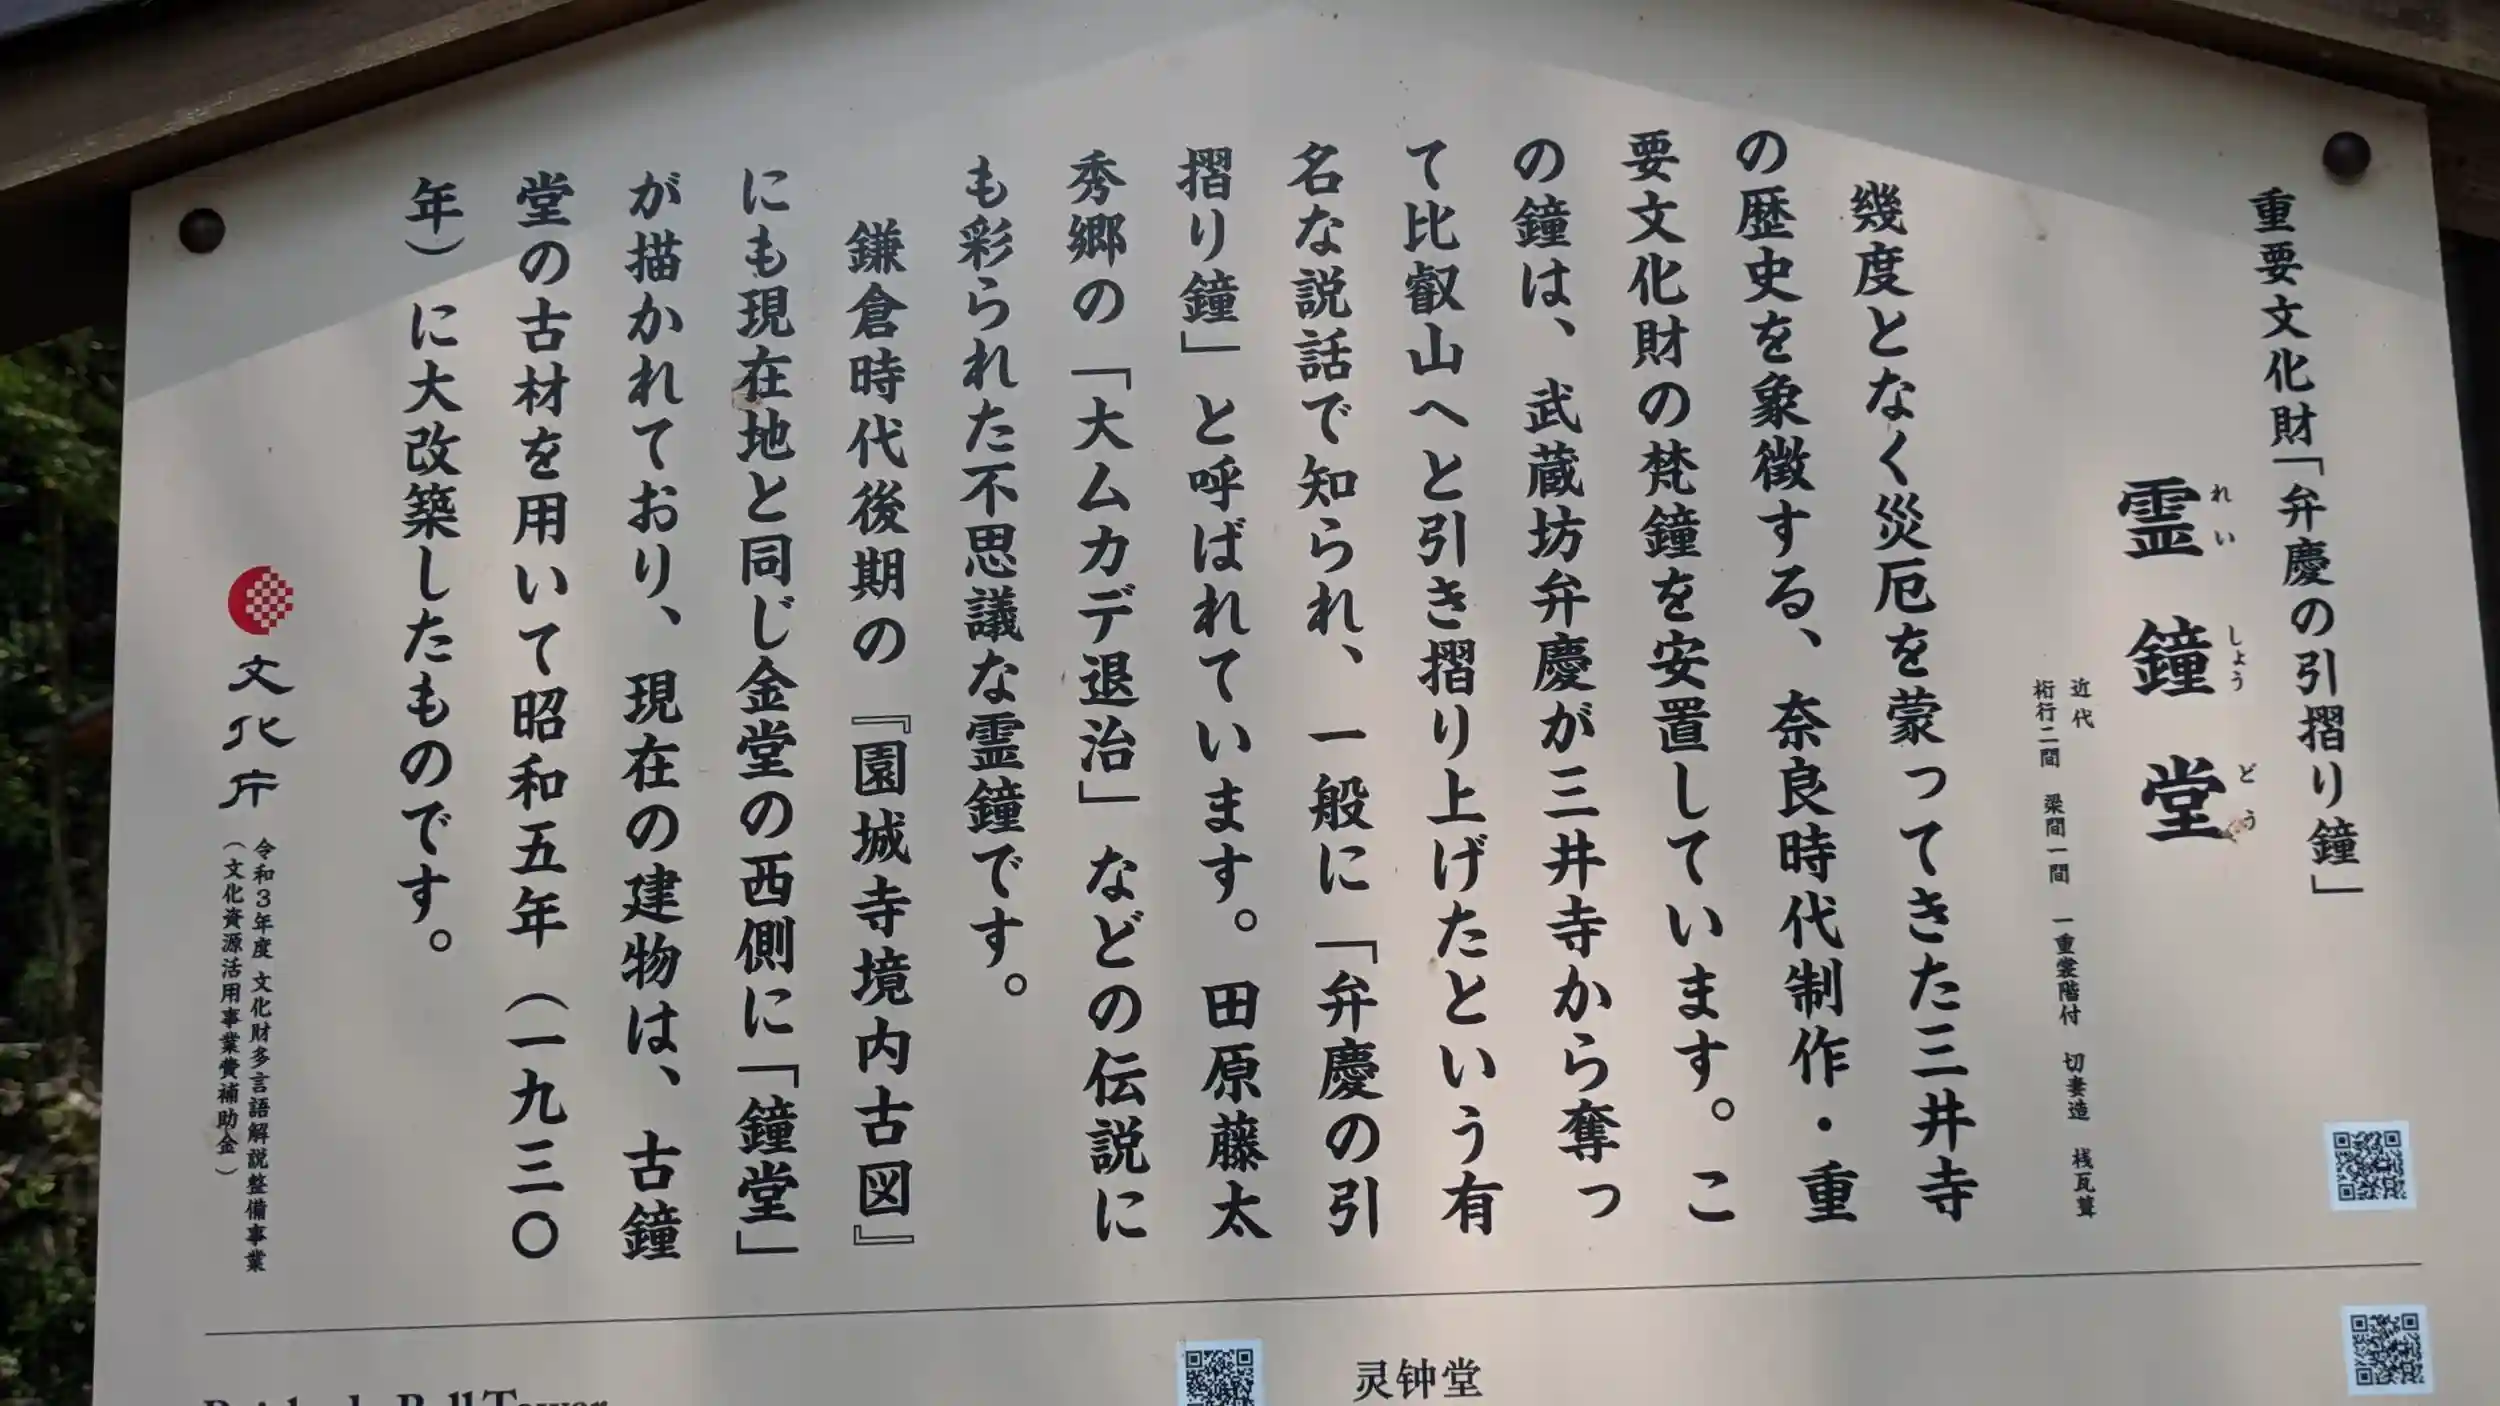 重要文化財「弁慶の引摺り鐘」
霊鐘堂
れいしょうどう
近代
桁行二間 梁間一間 一重裳階付 切妻造 桟瓦葺
幾度となく災厄を蒙ってきた三井寺
の歴史を象徴する、奈良時代制作・重
要文化財の梵鐘を安置しています。こ
の鐘は、武蔵坊弁慶が三井寺から奪っ
て比叡山へと引き摺り上げたという有
名な説話で知られ、一般に「弁慶の引
摺り鐘」と呼ばれています。田原藤太
秀郷の「大ムカデ退治」などの伝説に
も彩られた不思議な霊鐘です。
鎌倉時代後期の『園城寺境内古図』
にも現在地と同じ金堂の西側に「鐘堂」
が描かれており、現在の建物は、古鐘
堂の古材を用いて昭和五年（一九三〇
年）に大改築したものです。
文化庁
令和3年度 文化財多言語解説整備事業
（文化資源活用事業費補助金）
灵钟堂